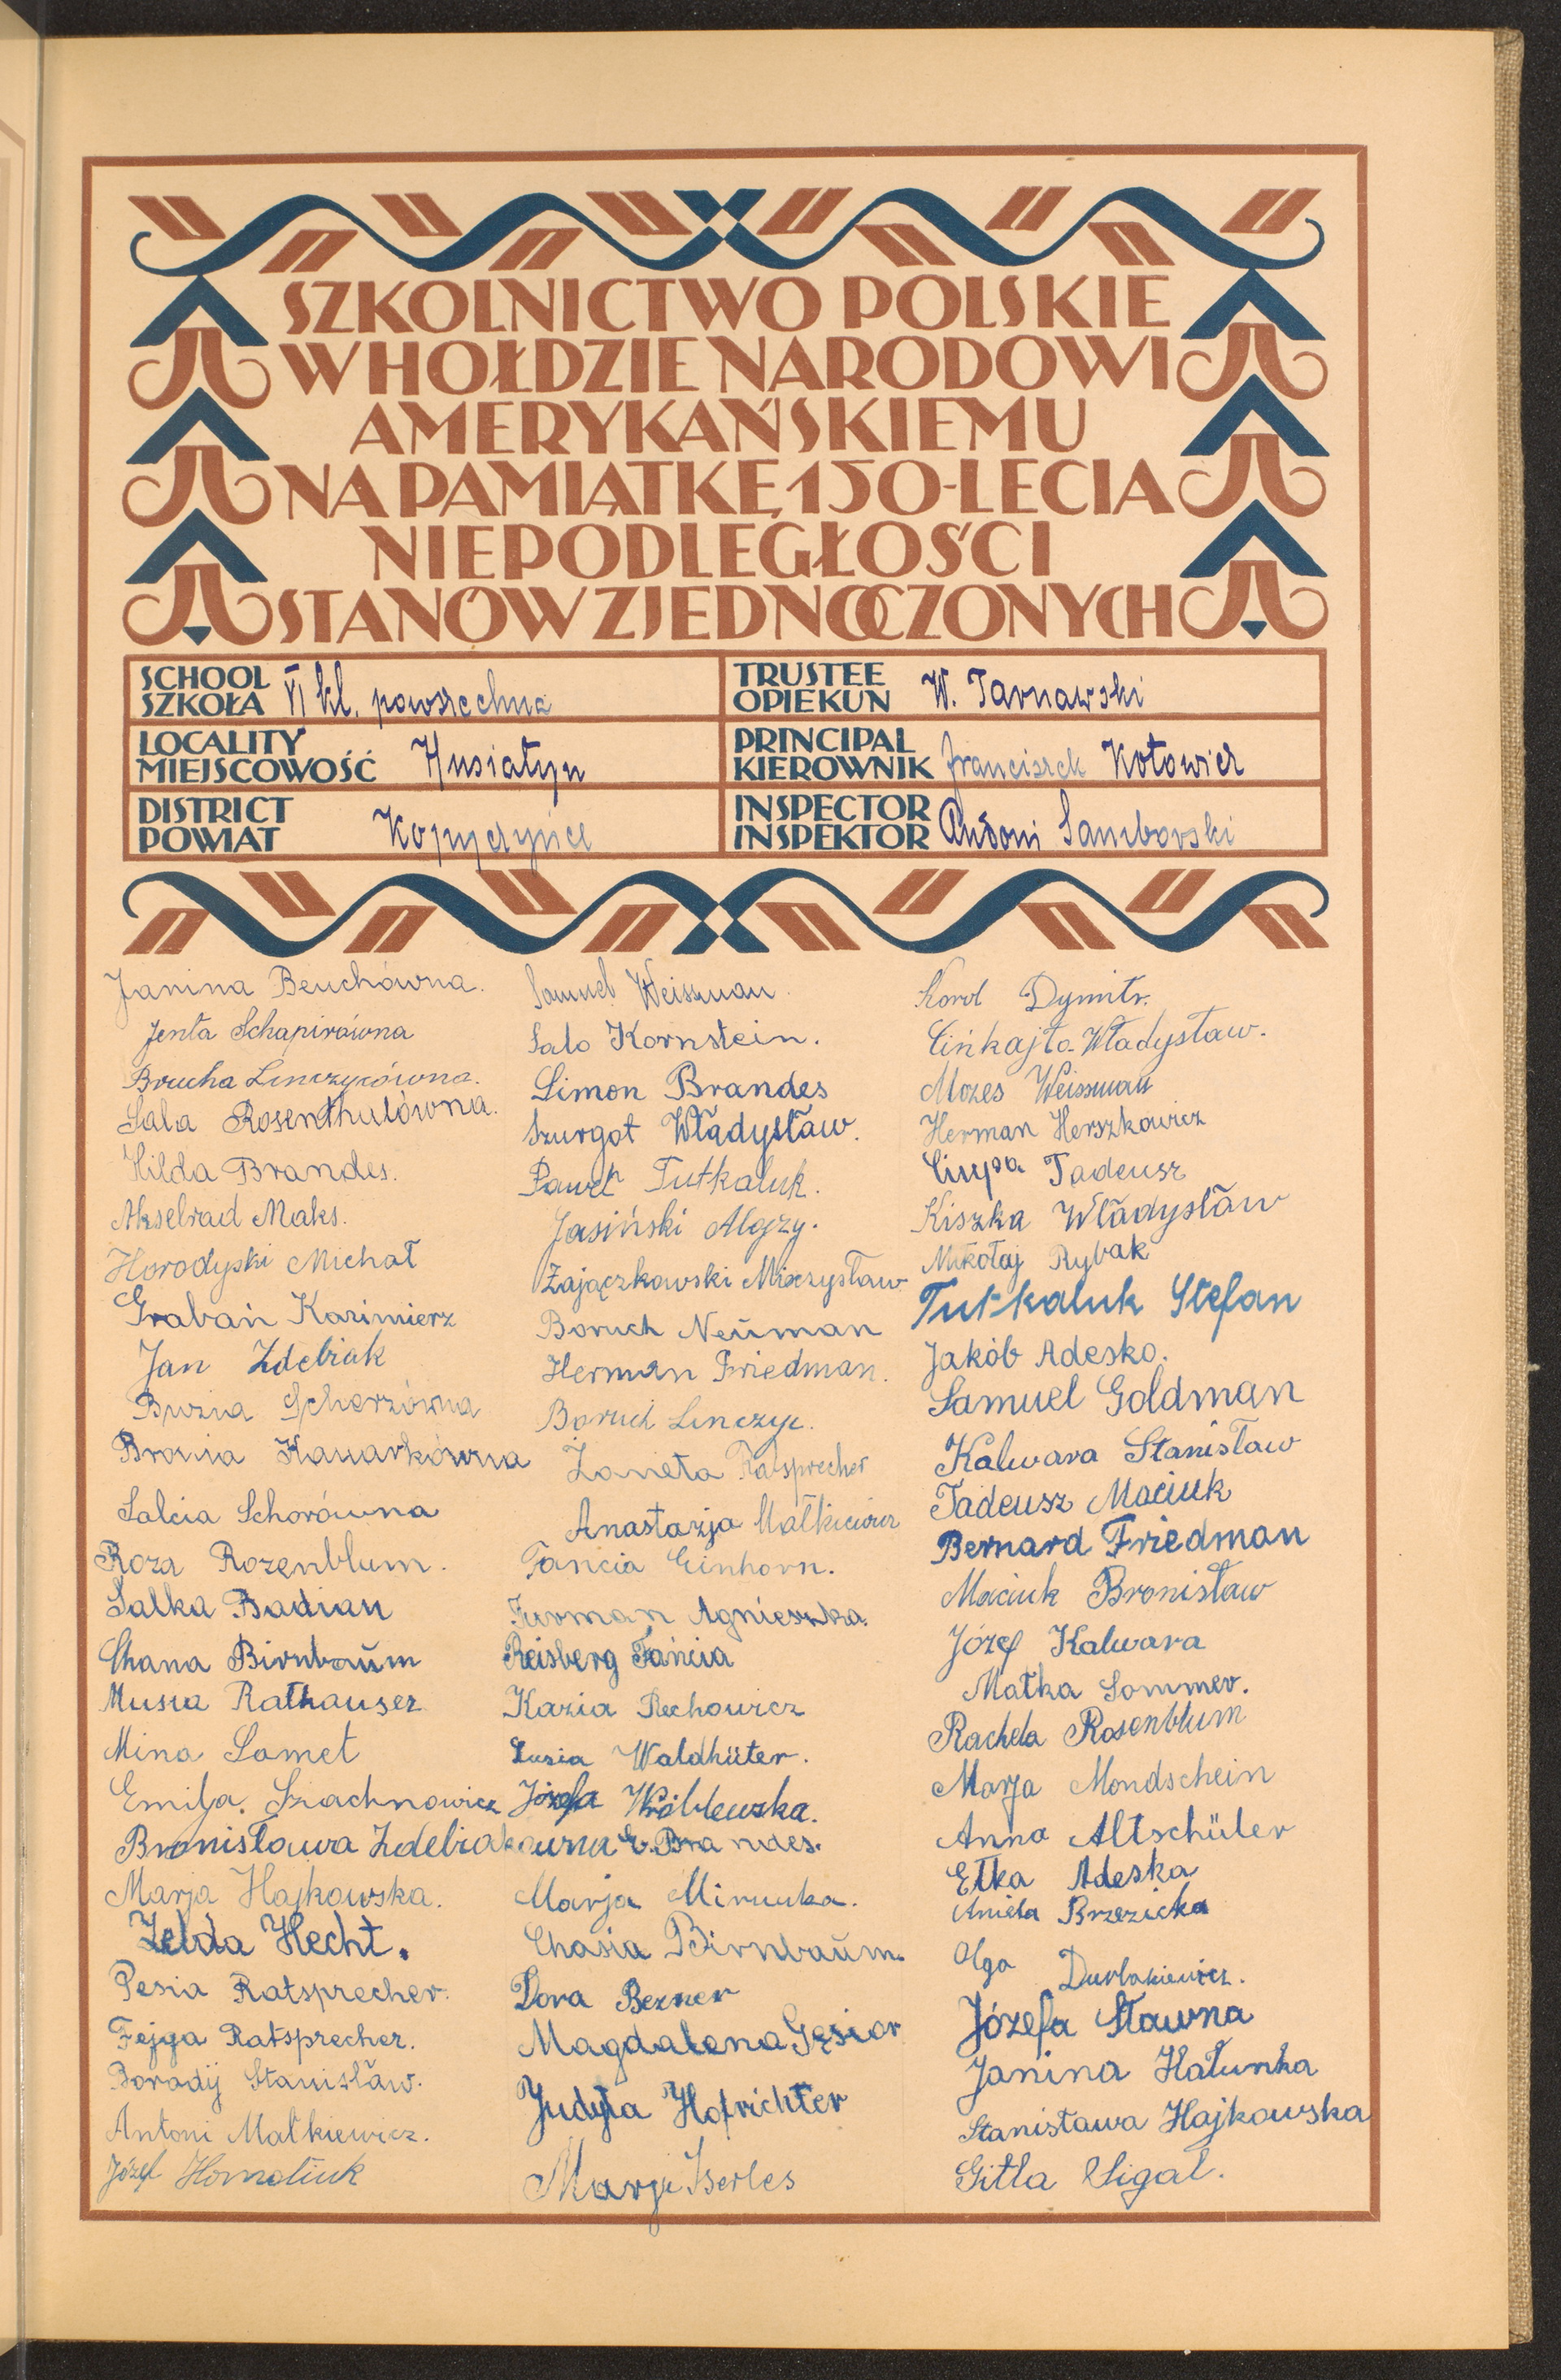 SZKOLNICTWO POLSKIE
W HOŁDZIE NARODOWI
AMERYKAŃSKIEMU
NA PAMIĄTKĘ 150-LECIA
NIEPODLEGŁOŚCI
STANÓW ZJEDNOCZONYCH
SCHOOL
SZKOŁA VI kl. powszechna
TRUSTEE
OPIEKUN W. Tarnawski
LOCALITY
MIEJSCOWOŚĆ Husiatyn
PRINCIPAL
KIEROWNIK Franciszek Kotowicz
DISTRICT
POWIAT Kopyczyńce
INSPECTOR
INSPEKTOR Antoni Samborski
Janina Beuchówna.
Jenta Schapirówna
Brucha Linczycówna.
Sala Rosenthulówna.
Hilda Brandes.
Akselrad Maks.
Horodyski Michał
Grabań Kazimierz
Jan Zdebiak
Buzia Scherzówna
Bronia Kanarkówna
Salcia Schorówna
Roza Rozenblum.
Salka Badian
Chana Birnbaŭm
Musia Rathauser
Mina Samet
Emilja Szachnowicz
Bronisława Zdebiakówna
Marja Hajkowska.
Zelda Hecht.
Pesia Ratsprecher.
Fejga Ratsprecher.
Borodij Stanisław.
Antoni Małkiewicz.
Józef Homatiuk
Samuel Weissman.
Salo Kornstein.
Simon Brandes
Szurgot Władysław.
Paweł Tutkaluk.
Jasiński Alojzy.
Zajączkowski Mieczysław
Boruch Neŭman
Herman Friedman.
Boruch Linczyc.
Żaneta Ratsprecher
Anastazja Małkiewicz
Fancia Einhorn.
Furman Agnieszka.
Reisberg Fańcia
Kazia Rechowicz
Luzia Waldhüter.
Józefa Wróblewska.
E. Brandes.
Marja
Chasia Birnbaŭm.
Dora Bezner
Magdalena Gęsior
Judyta Hofrichter
Marja Iserles
Korol Dymitr.
Cińkajło Władysław.
Mozes Weissman
Herman Herszkowicz
Ciupa Tadeusz
Kiszka Władysław
Mikołaj Rybak
Tutkaluk Stefan
Jakób Adesko.
Samuel Goldman
Kalwara Stanisław
Tadeusz Maciuk
Bernard Friedman
Maciuk Bronisław
Józef Kalwara
Małka Sommer.
Rachela Rosenblum
Marja Mondschein
Anna Altschüler
Etka Adeska
Aniela Brzezicka
Olga Durbakiewicz.
Józefa Sławna
Janina Hałunka
Stanisława Hajkowska
Gitla Sigal.